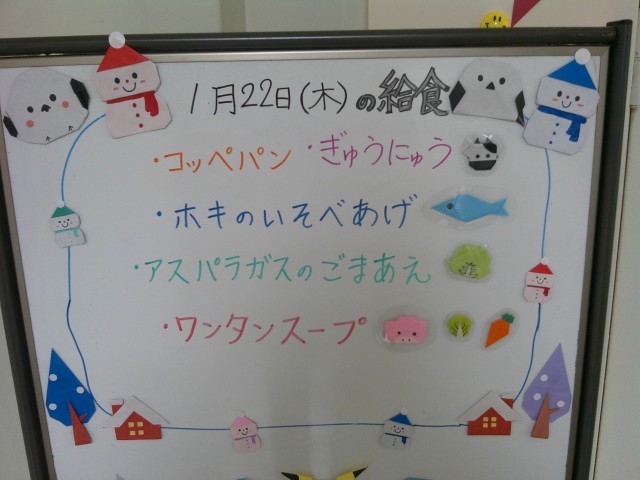 1月22日(木)の給食
・コッペパン ・ぎゅうにゅう
・ホキのいそべあげ
・アスパラガスのごまあえ
・ワンタンスープ